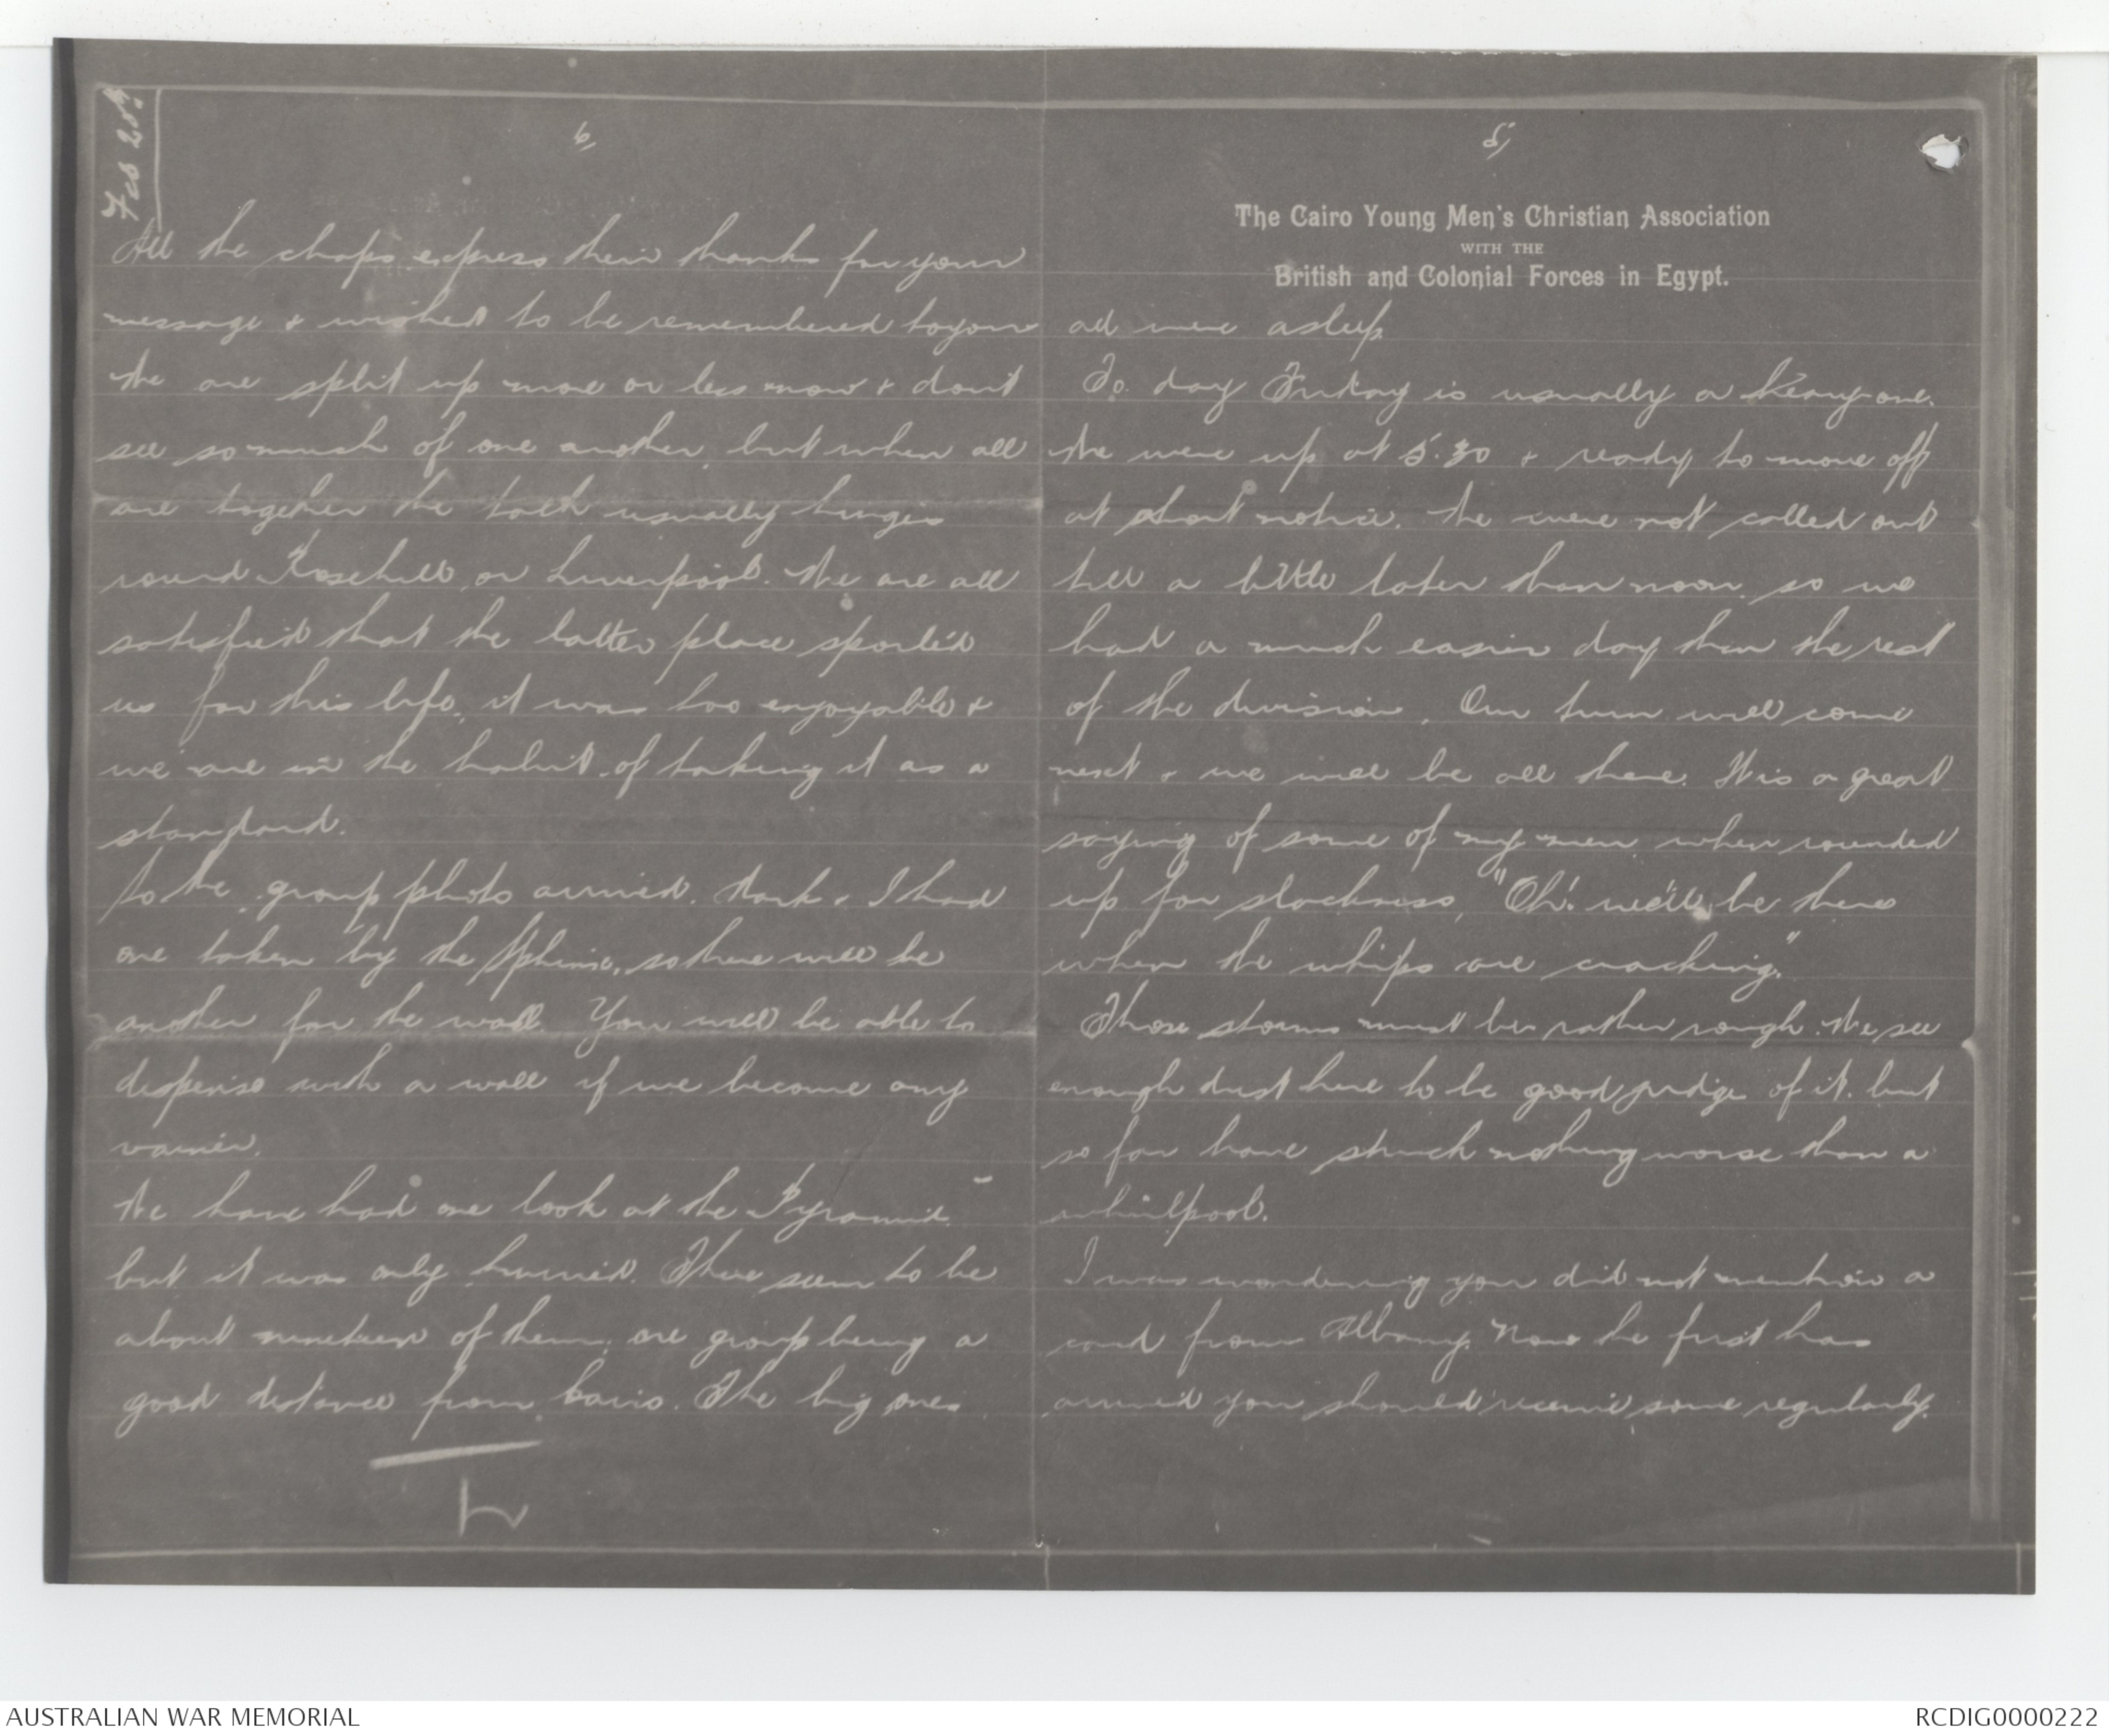 5/
The Cairo Young Men's Christian Association
WITH THE
British and Colonial Forces in Egypt.
all were asleep.
To day Friday is usually a heavy one.
We were up at 5.30 & ready to move off
at short notice. We were not called out
till a little later than noon. so we
had a much easier day than the rest
of the division. Our turn will come
next & we will be all there. It is a great
saying of some of my men when rounded
up for slackness, "Oh! we'll be there
when the whips are cracking."
Those storms must be rather rough. We see
enough dust here to be good judge of it. but
so far have struck nothing worse than a
whirlpool.
I was wondering you did not mention a
card from Albany. Now the first has
arrived you should receive some regularly.
6/
Feb 28th
All the chaps express their thanks for your
message & wished to be remembered to you
We are split up more or less now & dont
see so much of one another, but when all
are together the talk usually hinges
round Rosehill, or Liverpool. We are all
satisfied that the latter place spoiled
us for this life, it was too enjoyable &
we are in the habit of taking it as a
standard.
So the group photo arrived. & I had
one taken by the Sphinx, so there will be
another for the wall. You will be able to
dispense with a wall if we become any
vainer.
We have had one look at the Pyramid
but it was only hurried. There seem to be
about nineteen of them, one group being a
good distance from Cairo. The big ones
AUSTRALIAN WAR MEMORIAL
RCDIG0000222